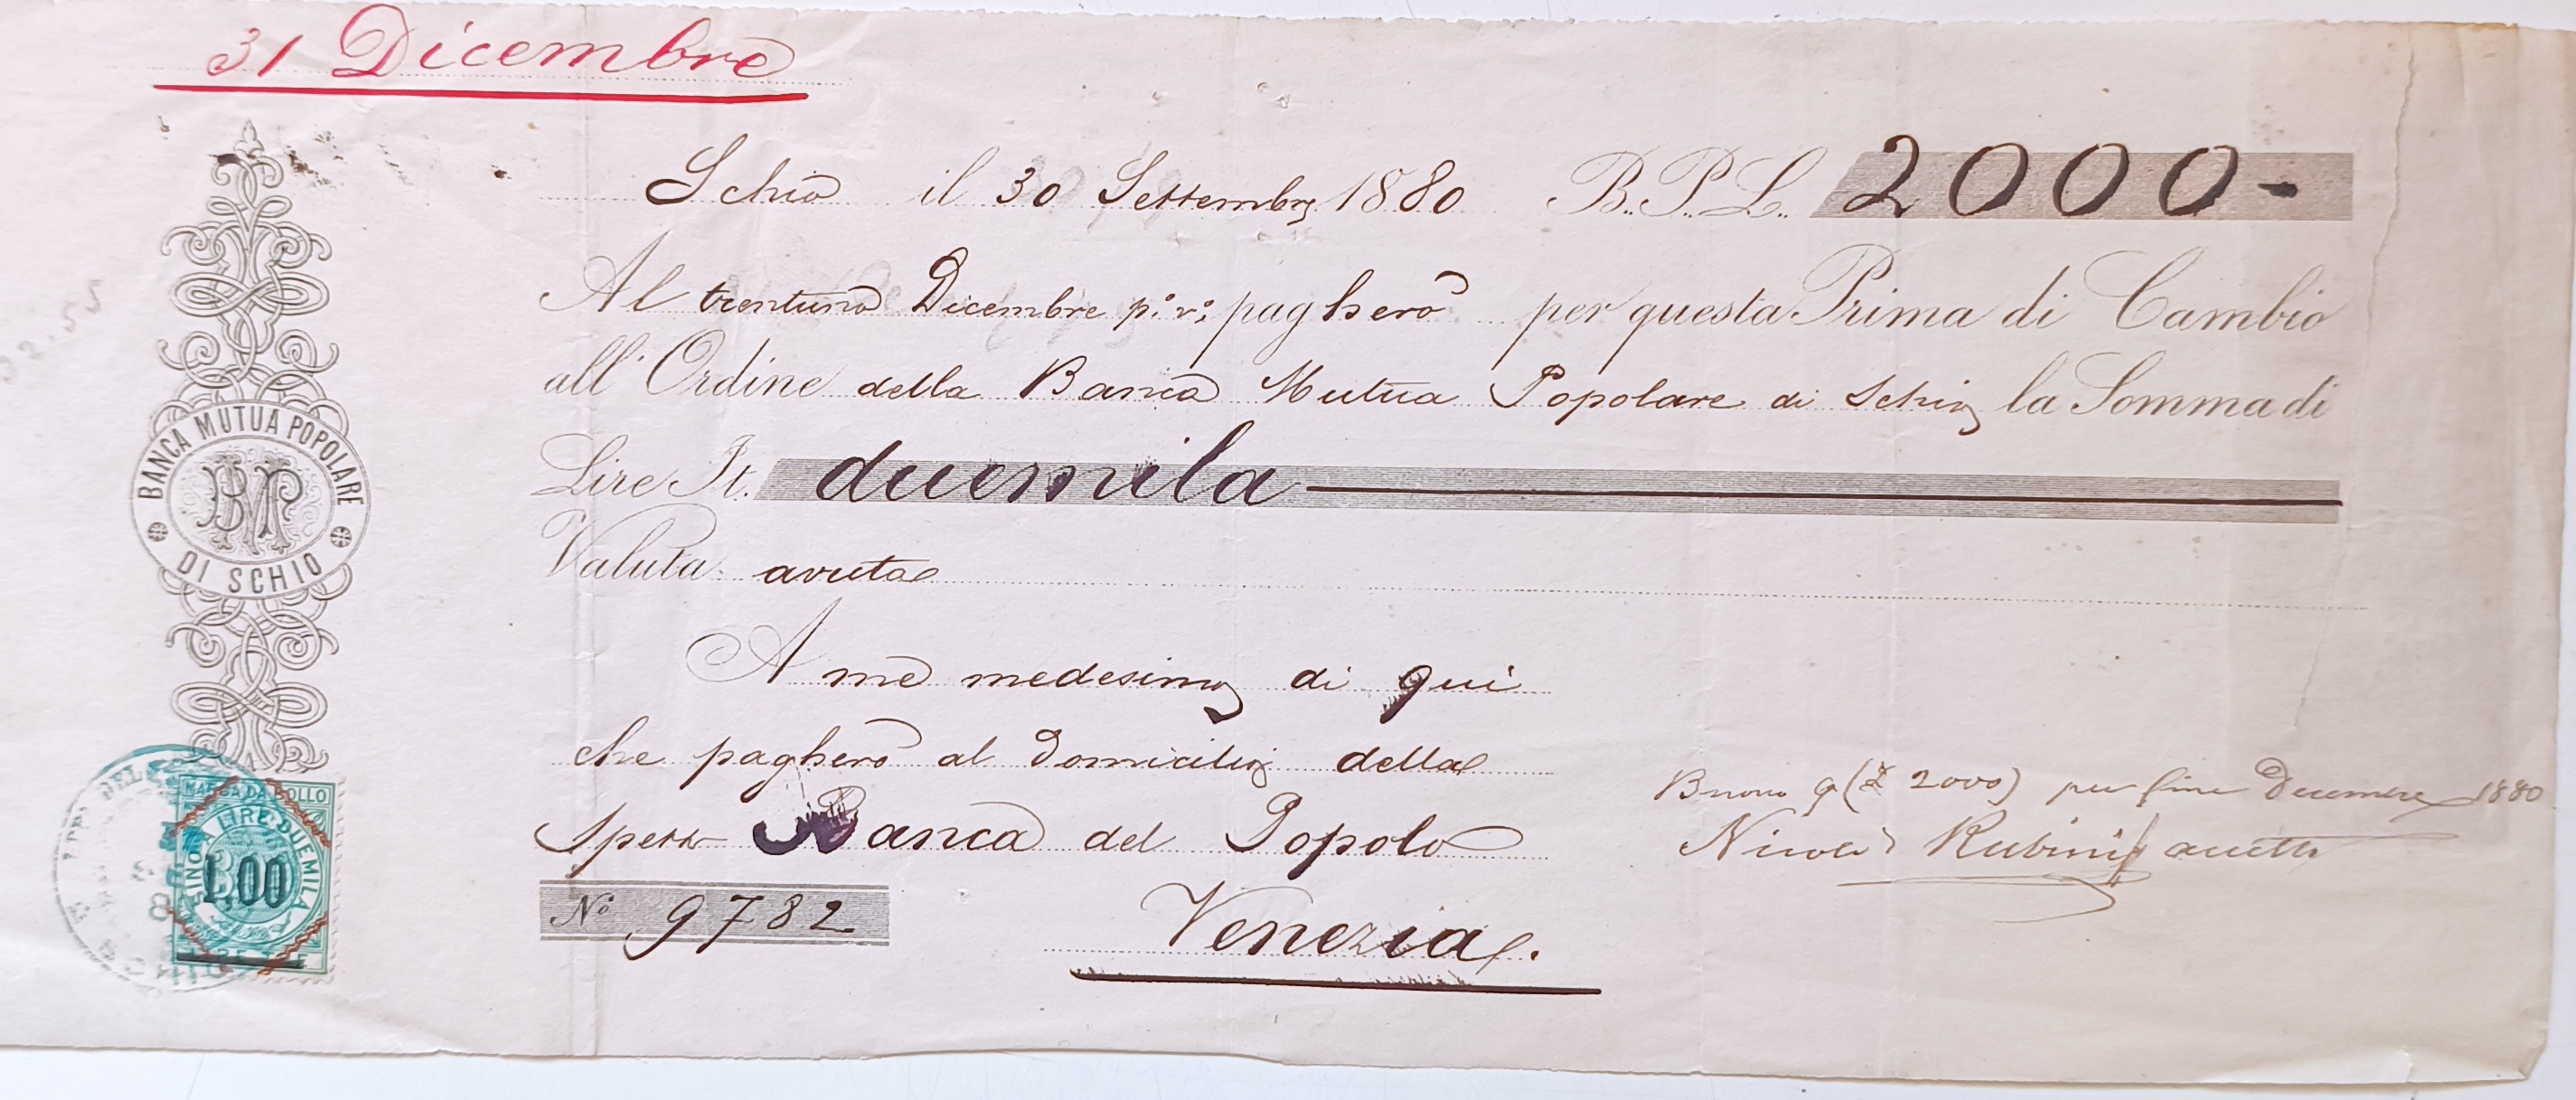 31 Dicembre
Schio il 30 Settembre 1880 B.P.L. 2000-
Al trentuno Dicembre p.v. pagherò per questa Prima di Cambio
all'Ordine della Banca Mutua Popolare di Schio la Somma di
Lire It. duemila
Valuta avuta
A me medesimo di qui
che pagherò al domicilio della
Spett Banca del Popolo
Venezia.
Nº 9782
Buono (£ 2000) per fine Decembre 1880
Rubini
BANCA MUTUA POPOLARE
DI SCHIO
BMP
MARCA DA BOLLO
LIRE DUEMILA
1.00